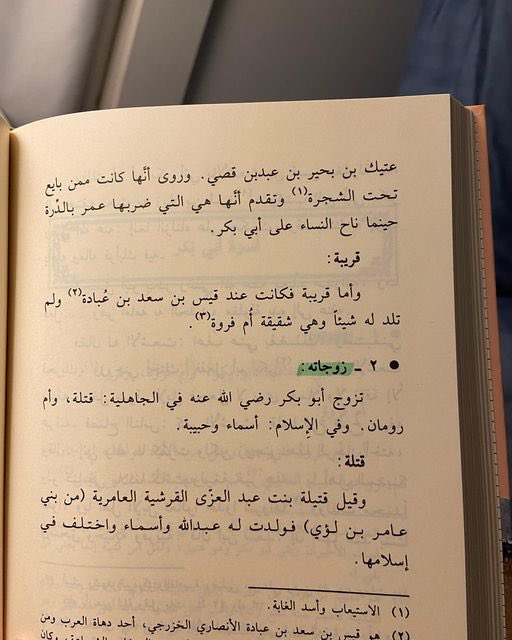 عتيك بن بحير بن عبدبن قصي. وروى أنَّها كانت ممن بايع
تحت الشجرة(١) وتقدم أنَّها هي التي ضربها عمر بالدْرة
حينما ناح النساء على أبي بكر.
قريبة:
وأما قريبة فكانت عند قيس بن سعد بن عُبادة(٢) ولم
تلد له شيئاً وهي شقيقة أُم فروة(٣).
● ٢ ـ زوجاته:
تزوج أبو بكر رضي الله عنه في الجاهلية: قتلة، وأم
رومان. وفي الإِسلام: أسماء وحبيبة.
قتلة:
وقيل قتيلة بنت عبد العزّى القرشية العامرية (من بني
عامر بن لؤي) فولدت له عبدالله وأسماء واختلف في
إسلامها.
(١) الاستيعاب وأسد الغابة.
(٢) هو قيس بن سعد بن عبادة الأنصاري الخزرجي، أحد دهاة العرب ومن